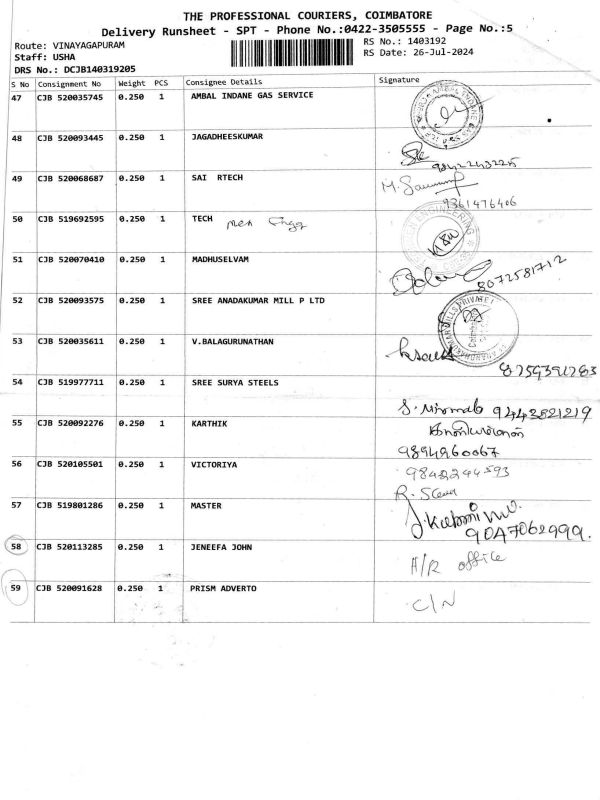 THE PROFESSIONAL COURIERS, COIMBATORE
Delivery Runsheet - SPT - Phone No.:0422-3505555 - Page No.:5
Route: VINAYAGAPURAM
RS No.: 1403192
Staff: USHA
RS Date: 26-Jul-2024
DRS No.: DCJB140319205
S No Consignment No Weight PCS Consignee Details Signature
47 CJB 520035745 0.250 1 AMBAL INDANE GAS SERVICE
48 CJB 520093445 0.250 1 JAGADHEESKUMAR
9842243225
49 CJB 520068687 0.250 1 SAI RTECH
9361476406
50 CJB 519692595 0.250 1 TECH
51 CJB 520070410 0.250 1 MADHUSELVAM
8072581712
52 CJB 520093575 0.250 1 SREE ANADAKUMAR MILL P LTD
53 CJB 520035611 0.250 1 V.BALAGURUNATHAN
54 CJB 519977711 0.250 1 SREE SURYA STEELS
9443821219
55 CJB 520092276 0.250 1 KARTHIK
9894960067
56 CJB 520105501 0.250 1 VICTORIYA
9842244593
57 CJB 519801286 0.250 1 MASTER
9047062999.
58 CJB 520113285 0.250 1 JENEEFA JOHN
A/R office
59 CJB 520091628 0.250 1 PRISM ADVERTO
C/N